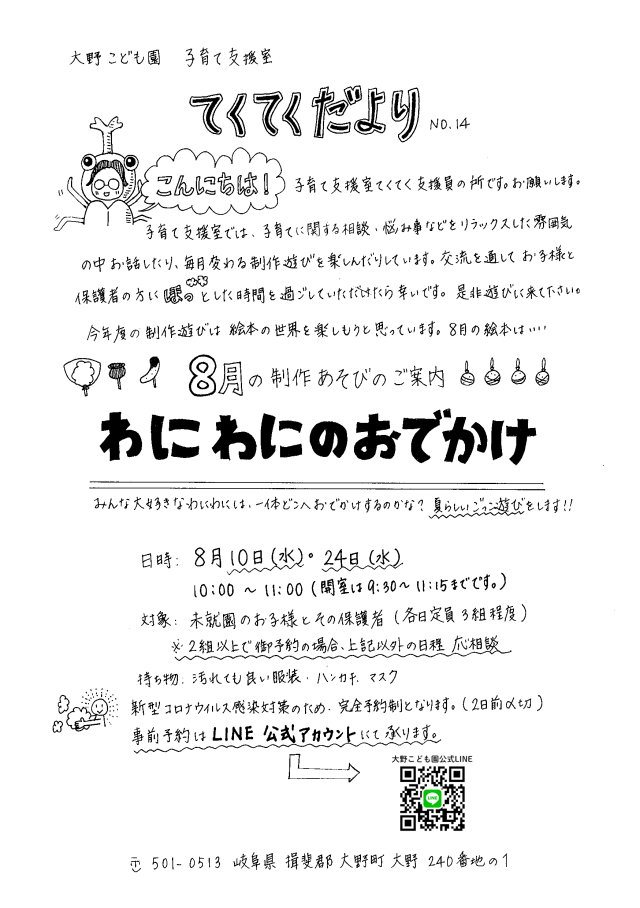 大野こども園 子育て支援室
てくてくだより NO.14
こんにちは! 子育て支援室てくてく支援員の所です。お願いします。
子育て支援室では、子育てに関する相談・悩み事などをリラックスした雰囲気
の中お話したり、毎月変わる制作遊びを楽しんだりしています。交流を通してお子様と
保護者の方にほっとした時間を過ごしていただけたら幸いです。是非遊びに来て下さい。
今年度の制作遊びは絵本の世界を楽しもうと思っています。8月の絵本は・・・・
8月の制作あそびのご案内
わにわにのおでかけ
みんな大好きなわにわには、一体どこへおでかけするのかな?夏らしいごっこ遊びをします!!
日時: 8月10日(水)・24日(水)
10:00 ~ 11:00 (開室は9:30~11:15までです。)
対象: 未就園のお子様とその保護者 (各日定員3組程度)
※2組以上で御予約の場合、上記以外の日程 応相談
持ち物: 汚れても良い服装・ハンカチ、マスク
新型コロナウイルス感染対策のため、完全予約制となります。(2日前〆切)
事前予約はLINE公式アカウントにて承ります。
大野こども園公式LINE
LINE
〒501-0513 岐阜県 揖斐郡 大野町 大野 240番地の1